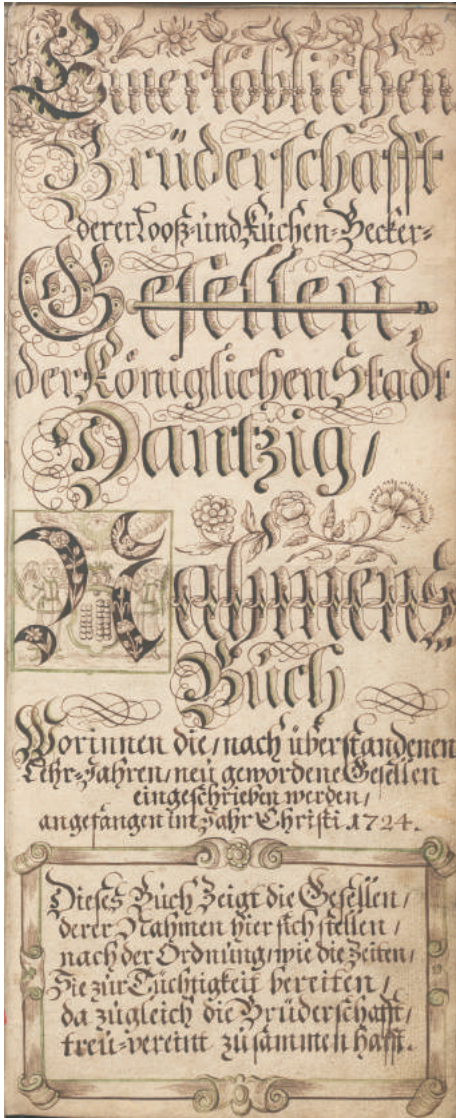 Einer löblichen
Brüderschafft
derer Looß- und Küchen-Becker-
Gesellen,
der Königlichen Stadt
Dantzig/
Nahmens
Büch
Worinnen die/ nach überstandenen
Lehr-Jahren/ neü gewordene Gesellen
eingeschrieben werden/
angefangen im Jahr Christi 1724.
Dieses Büch Zeigt die Gesellen/
derer Nahmen hier sich stellen/
nach der Ordnung/ wie die Zeiten/
Sie zür Tüchtigkeit bereiten/
da zügleich die Brüderschafft/
treü-vereint züsammen hafft.